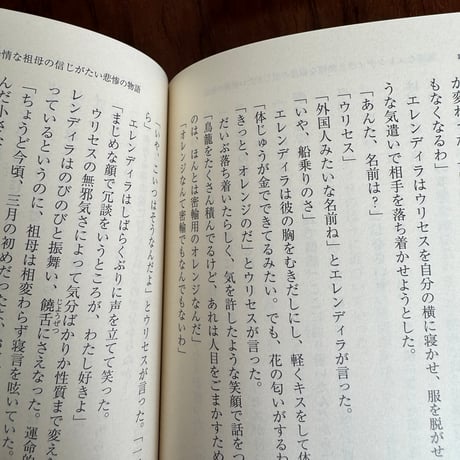 もなくなるわ」
エレンディラはウリセスを自分の横に寝かせ、服を脱がせ
うな気遣いで相手を落ち着かせようとした。
「あんた、名前は？」
「ウリセス」
「外国人みたいな名前ね」とエレンディラが言った。
「いや、船乗りのさ」
エレンディラは彼の胸をむきだしにし、軽くキスをして体
「体じゅうが金でできてるみたい。でも、花の匂いがするわ
「きっと、オレンジのだ」とウリセスが言った。
だいぶ落ち着いたらしく、気を許したような笑顔で話をつ
「鳥籠をたくさん積んでるけど、あれは人目をごまかすため
のは、ほんとは密輸用のオレンジなんだ」
「オレンジなんて密輸でもなんでもないわ」
情な祖母の信じがたい悲惨の物語
「いや、こいつはそうなんだよ」とウリセスが言った。「一
ら」
エレンディラはしばらくぶりに声を立てて笑った。
「まじめな顔で冗談をいうところが、わたし好きよ」
ウリセスの無邪気さによって気分ばかりか性質まで変え
レンディラはのびのびと振舞い、饒舌にさえなった。運命的
っているというのに、祖母は相変わらず寝言を呟いていた。
「ちょうど今頃、三月の初めだった
んだ小さな